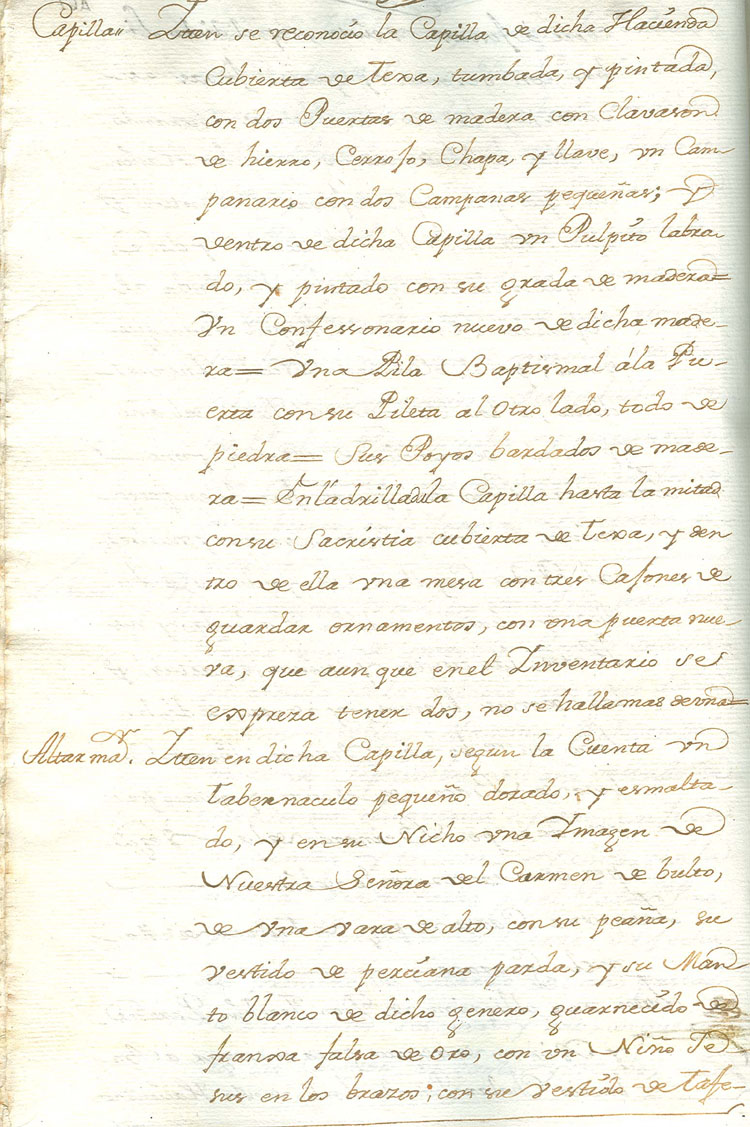 Capilla,, Yten se reconocio la Capilla de dicha Hacienda
cubierta de texa, tumbada, y pintada,
con dos Puertas de madera con Clavason
de hierro, Cerrojo, Chapa, y llave, vn Cam-
panario con dos Campanas pequeñas; y
dentro de dicha Capilla vn Pulpito labra-
do, y pintado con su grada de madera=
Vn Confessonario nuevo de dicha made-
ra= Vna Pila Baptismal á la Pu-
erta con su Pileta al otro lado, todo de
piedra= Sus Poyos bardados de made-
ra= Enladrillada la Capilla hasta la mitad
con su Sacristia cubierta de texa, y den
tro de ella vna mesa con tres Cajones de
guardar ornamentos, con vna puerta nue-
va, que aunque enel Ynventario se
expreza tener dos, no se halla mas de vna=
Altar maʳ. Yten en dicha Capilla, segun la Cuenta vn
tabernaculo pequeño dorado, y esmalta-
do, y en su Nicho vna Ymagen de
Nuestra Señora del Carmen de bulto,
de vna vara de alto, con su peaña, su
vestido de perciana parda, y su Man
to blanco de dicho genero, guarnecido de
franxa falsa de oro, con vn Niño Je
sus en los brazos; con su vestido de tafe-